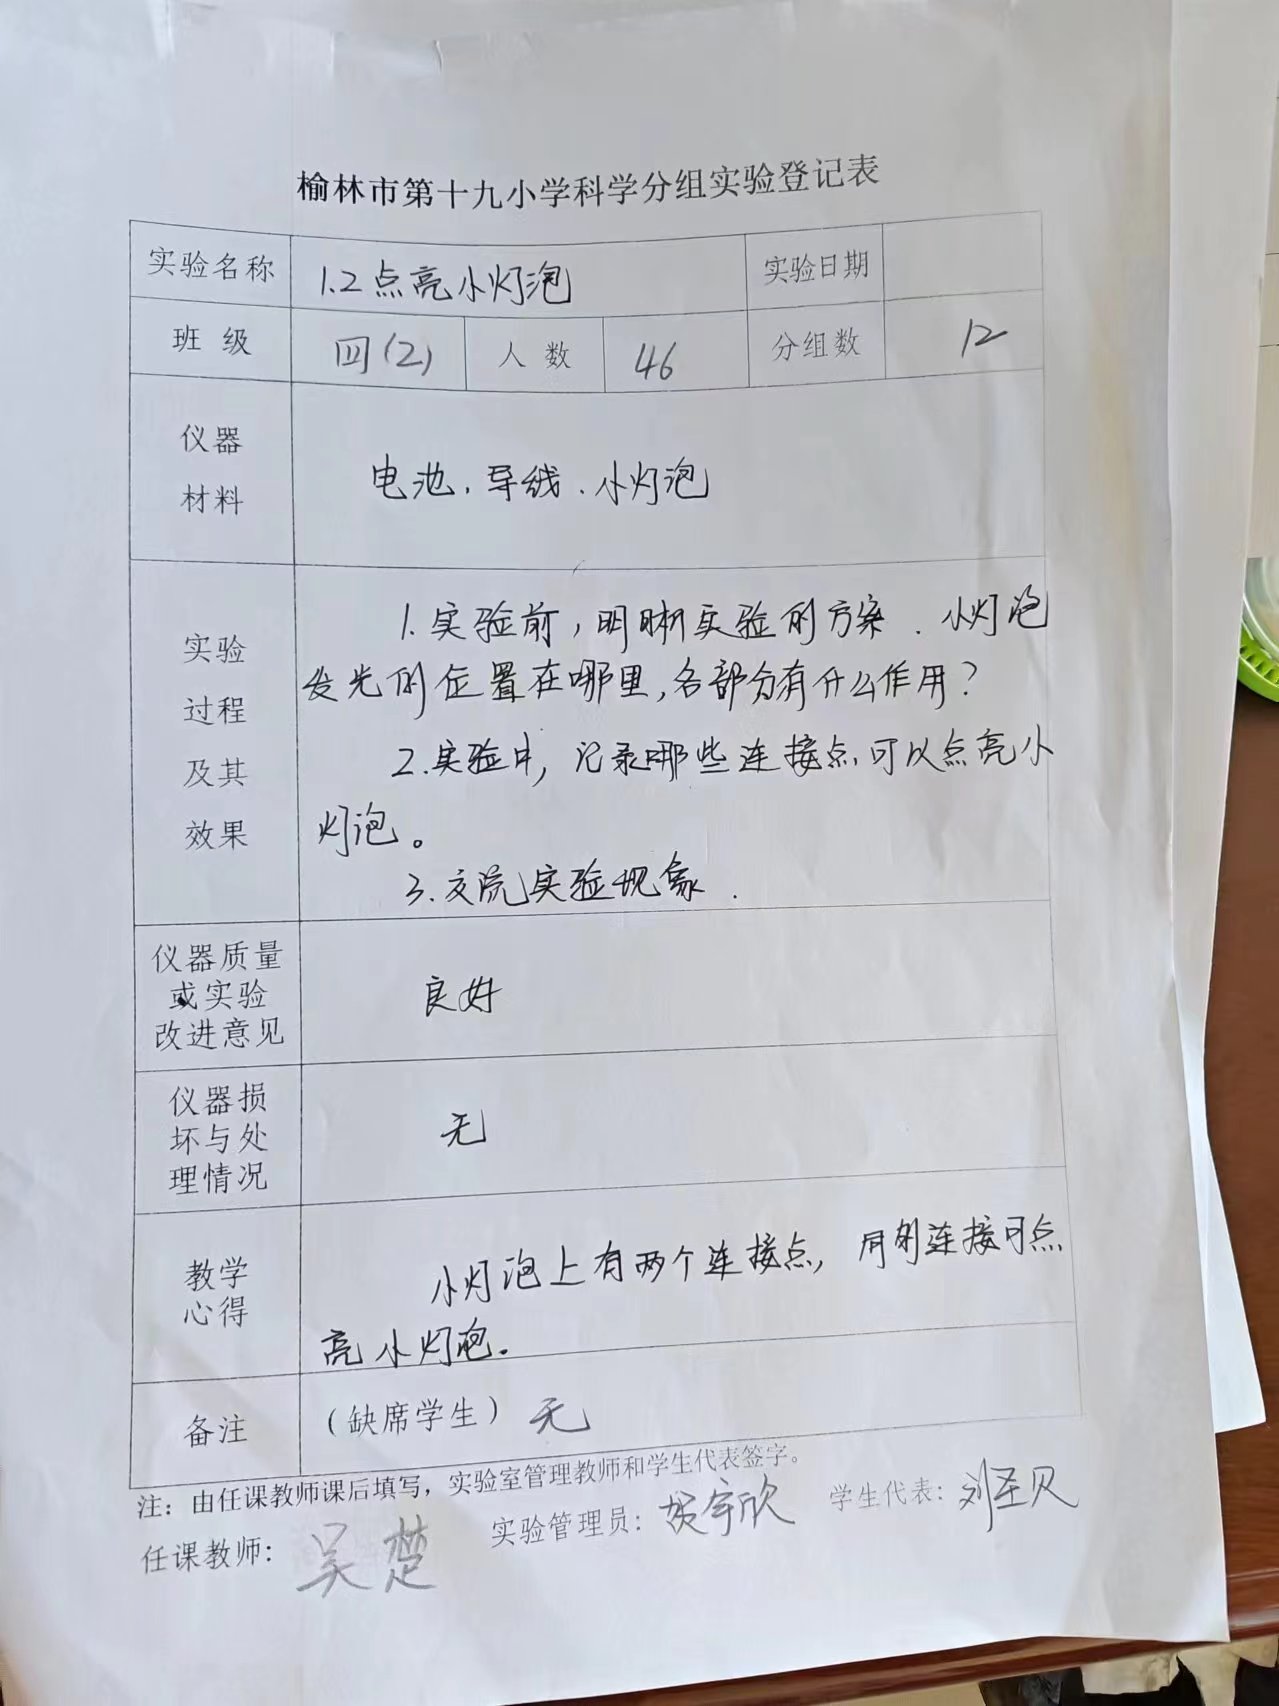 榆林市第十九小学科学分组实验登记表
实验名称 1.2点亮小灯泡 实验日期
班 级 四(2) 人 数 46 分组数 12
仪器
材料
电池.导线.小灯泡
实验
过程
及其
效果
1.实验前,明晰实验的方案.小灯泡
发光的位置在哪里,各部分有什么作用?
2.实验中,记录哪些连接点可以点亮小
灯泡。
3.交流实验现象.
仪器质量
或实验
改进意见
良好
仪器损
坏与处
理情况
无
教学
心得
小灯泡上有两个连接点,同时连接可点
亮小灯泡.
备注 (缺席学生) 无
注:由任课教师课后填写,实验室管理教师和学生代表签字。
任课教师: 吴楚 实验管理员: 贺宇欣 学生代表: 刘圣贝